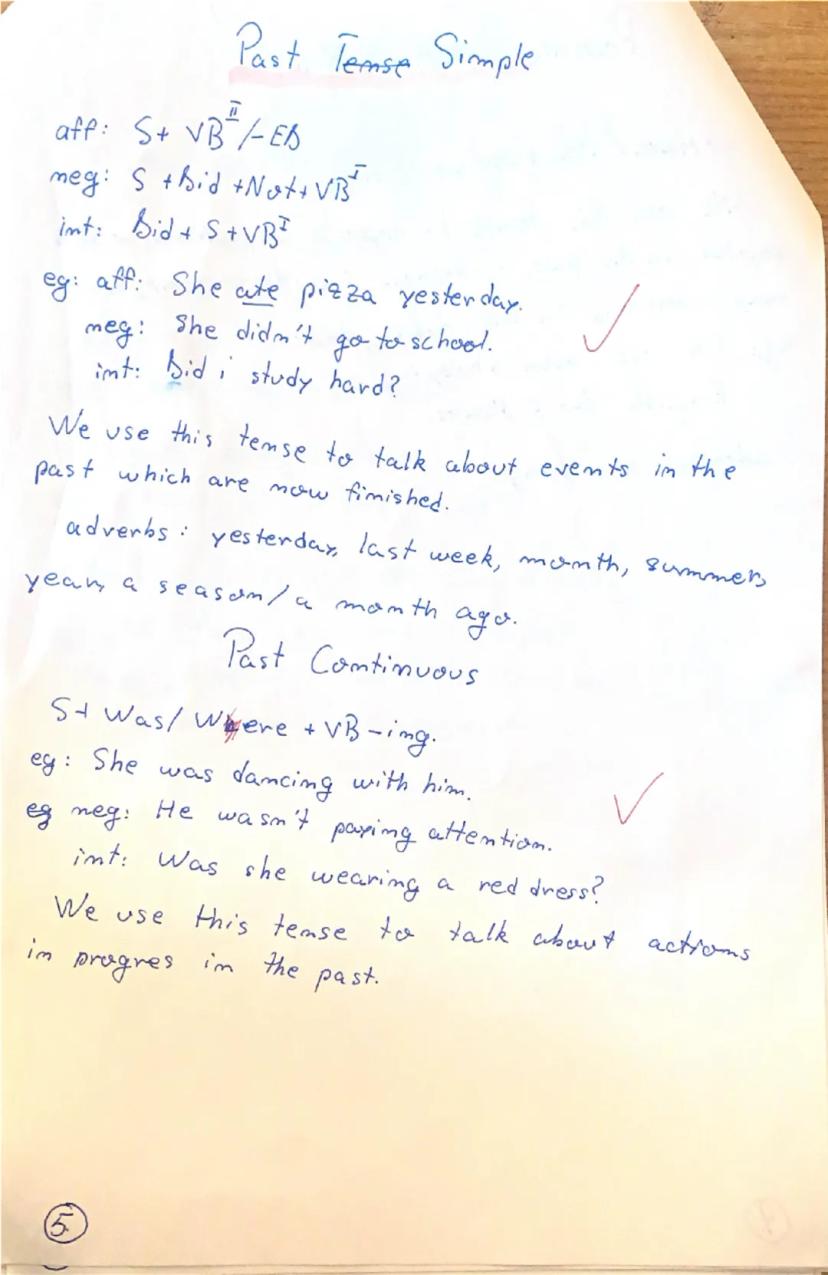 Past Tense Simple
aff: S+ VB II/-ED
neg: S + Did + Not + VB I
int: Did + S + VB I
eg: aff: She ate pizza yesterday.
neg: She didn't go to school.
int: Did i study hard?
We use this tense to talk about events in the
past which are now finished.
adverbs: yesterday, last week, month, summer,
year, a season/a month ago.
Past Continuous
S+ Was/ Where + VB -ing.
eg: She was dancing with him.
eg neg: He wasn't paying attention.
int: Was she wearing a red dress?
We use this tense to talk about actions
in progres in the past.
5